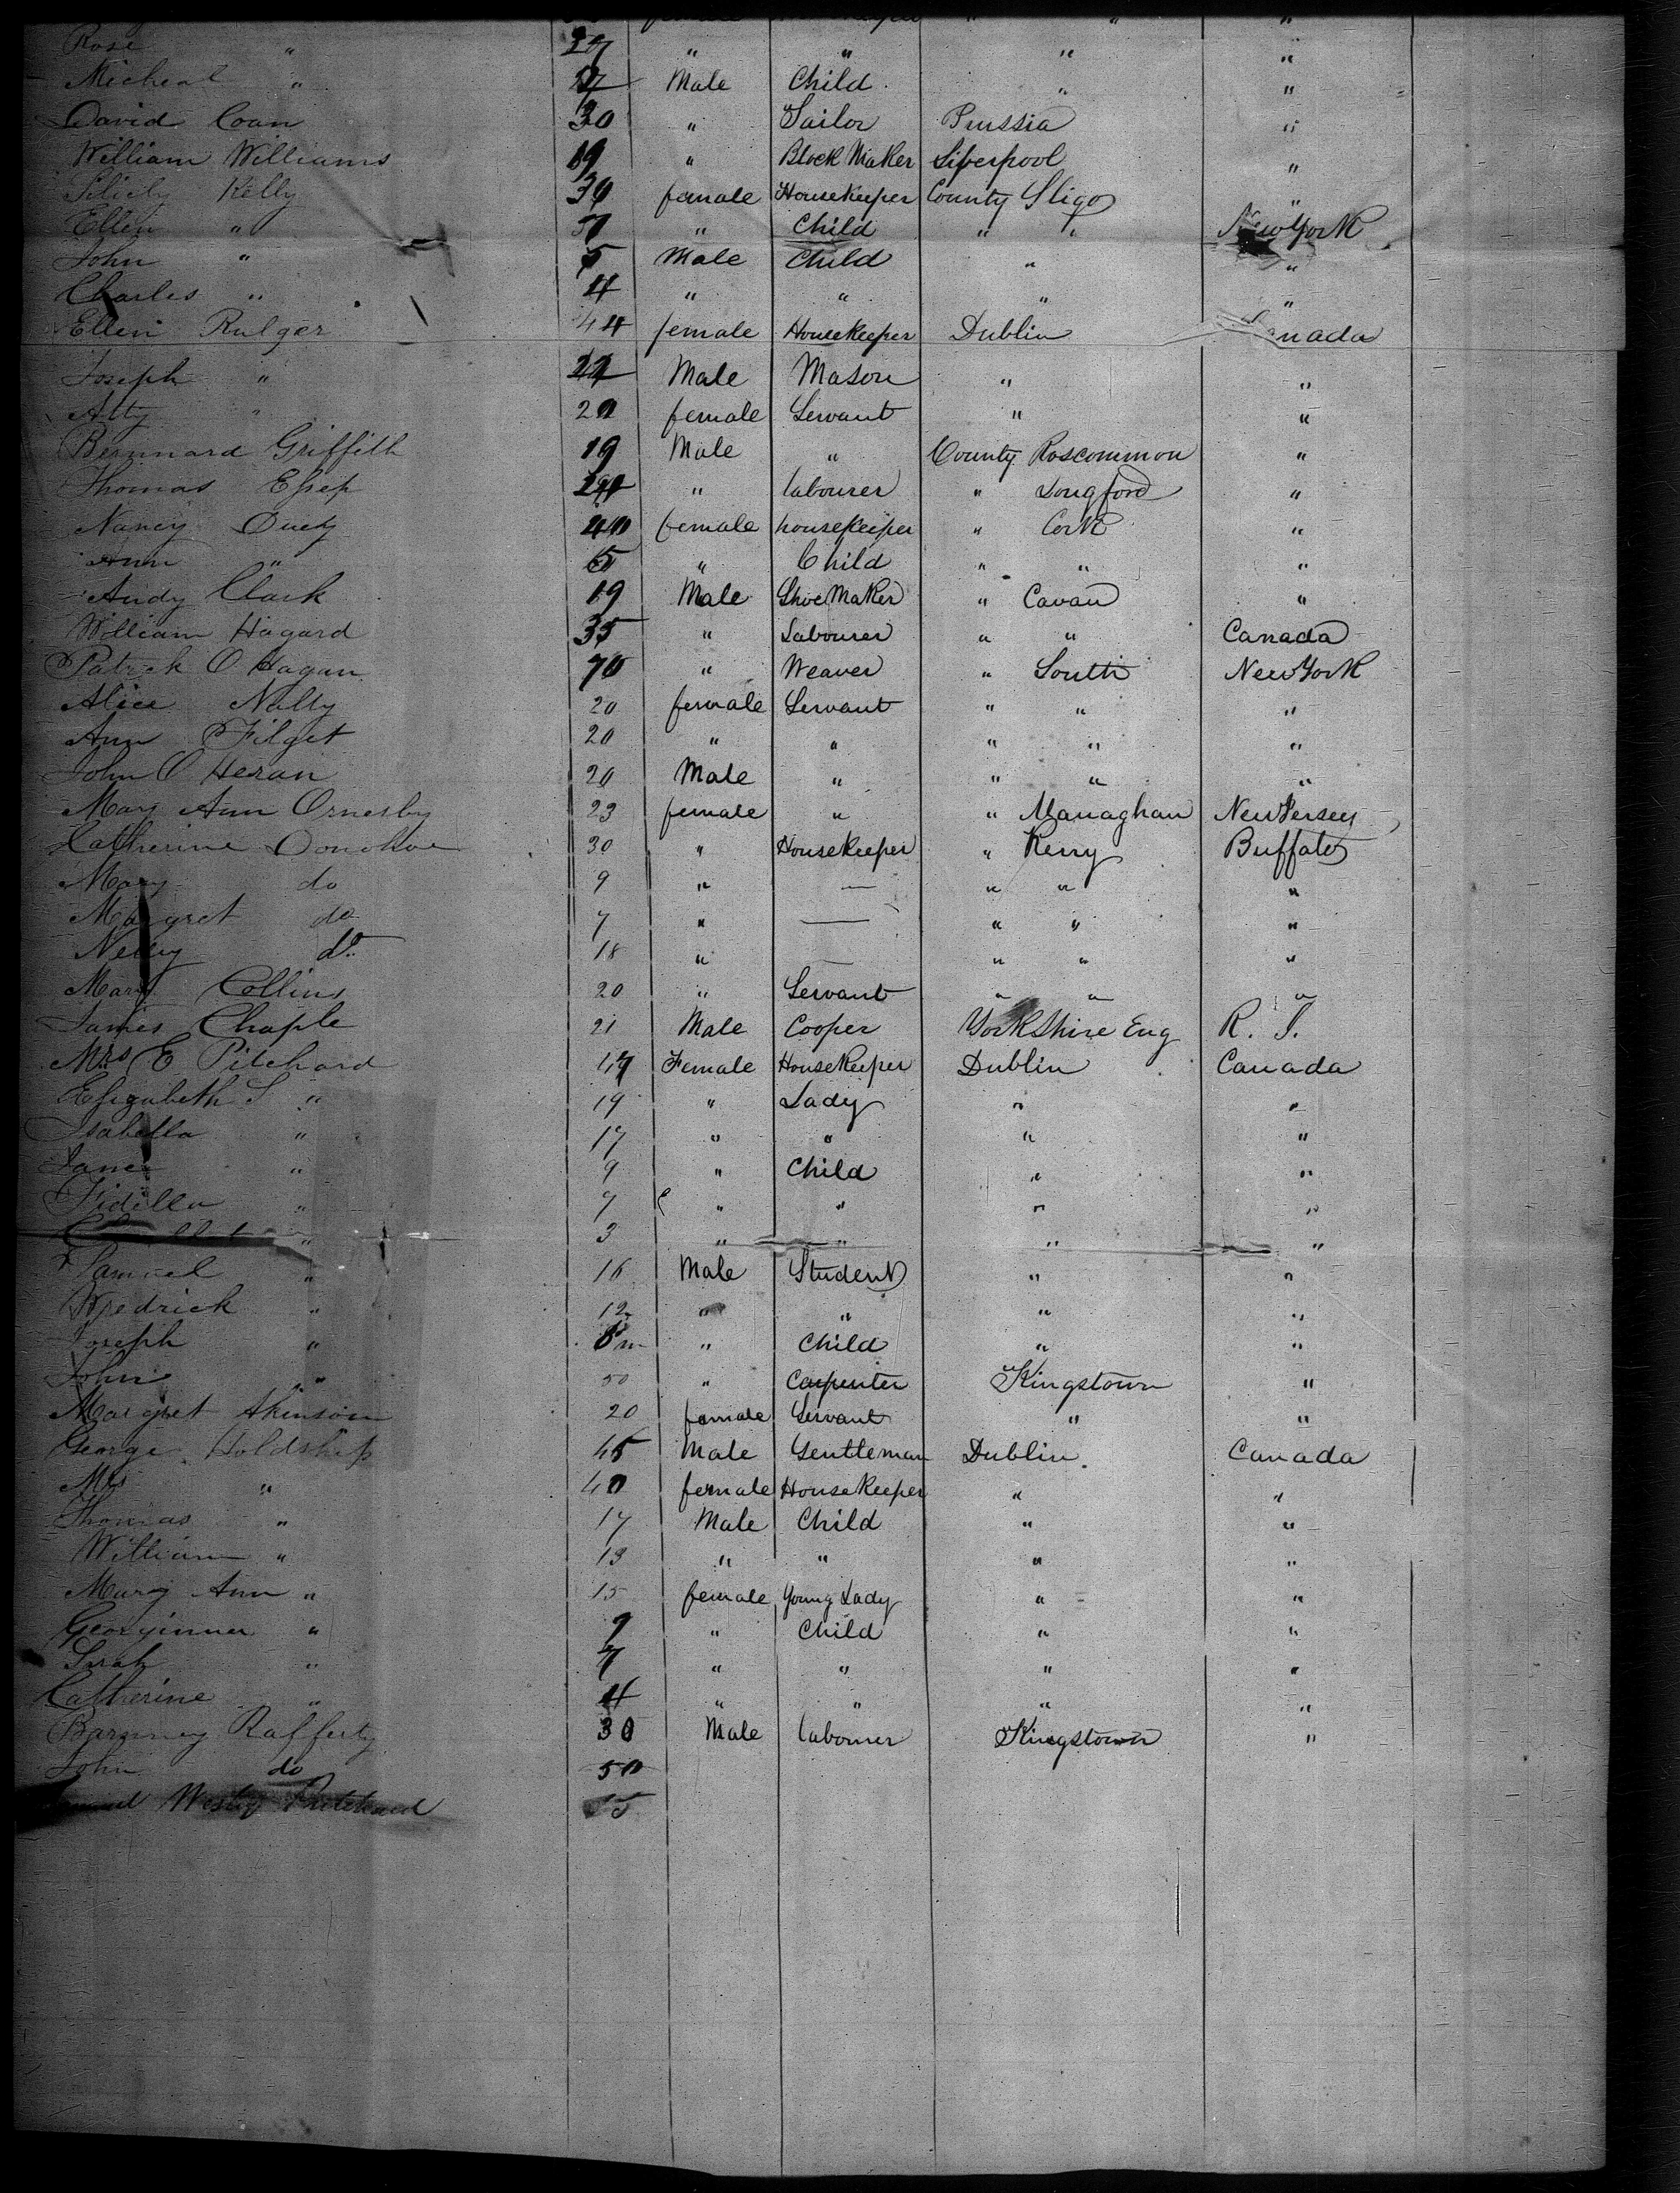 Rose " 27 " " " "
Micheal " Male Child " "
David Coan 30 " Sailor Prussia "
William Williams 19 " Block Maker Liverpool "
Kelly 30 female Housekeeper County Sligo "
Ellen " 7 " Child " " New York
John " 5 Male Child " "
Charles " 4 " " " "
Ellen Rulger 44 female Housekeeper Dublin Canada
Joseph " 22 Male Mason " "
" 20 female Servant " "
Bernnard Griffith 19 Male " County Roscommon "
Thomas 24 " labourer " Longford "
Nancy 40 female housekeeper " Cork "
Ann " 5 " Child " " "
Andy Clark 19 Male Shoe Maker " Cavan "
William Hagard 35 " Labourer " " Canada
Patrick O Hagan 70 " Weaver " Louth New York
Alice Nally 20 female Servant " " "
Ann Filget 20 " " " " "
John O Heran 20 Male " " " "
Mary Ann Ormsby 23 female " " Managhan New Jersey
Catherine Donohoe 30 " Housekeeper " Kerry Buffalo
Mary do 9 " — " " "
Margret do 7 " — " " "
Nelly do 18 " — " " "
Mary Collins 20 " Servant " " "
James Chaple 21 Male Cooper YorkShire Eng R. I.
Mrs E Pitchard 47 Female Housekeeper Dublin Canada
Elizabeth S " 19 " Lady " "
Isabella " 17 " " " "
Jane " 9 " Child " "
Fidilla " 7 " " " "
" 3 " " " "
Samuel " 16 Male Student " "
Fredrick " 12 " " " "
Joseph " 6 m " Child " "
John " 50 " Carpenter Kingstown "
Margret Akinson 20 female Servant " "
George Holdship 45 Male Gentleman Dublin. Canada
Mrs " 40 female Housekeeper " "
Thomas " 17 Male Child " "
William " 13 " " " "
Mary Ann " 15 female Young Lady " "
Georginner " 9 " Child " "
Sarah " 7 " " " "
Catherine " 4 " " " "
Barnney Rafferty 30 Male labourer Kingstown "
John do 50
Wesley Pritchard 15